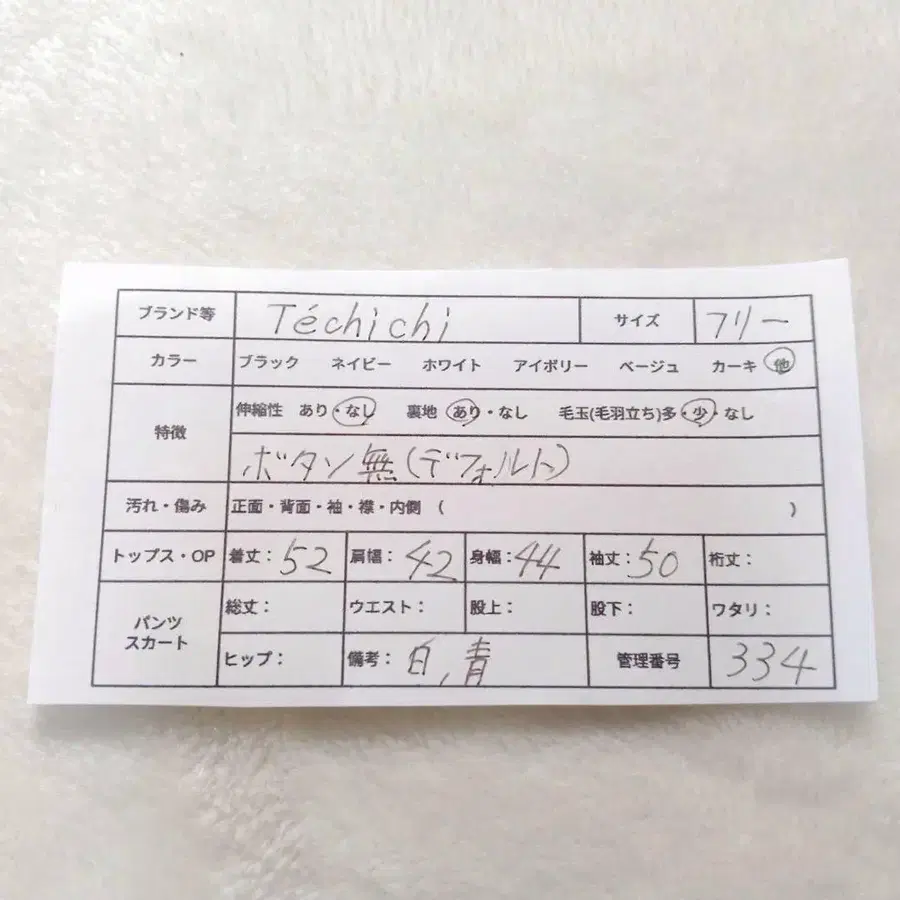 ブランド等 Téchichi サイズ フリー
カラー ブラック ネイビー ホワイト アイボリー ベージュ カーキ 他
特徴 伸縮性 あり・なし 裏地 あり・なし 毛玉(毛羽立ち)多・少・なし
ボタン無(デフォルト)
汚れ・傷み 正面・背面・袖・襟・内側 ( )
トップス・OP 着丈:52 肩幅:42 身幅:44 袖丈:50 裄丈:
パンツ スカート 総丈: ウエスト: 股上: 股下: ワタリ:
ヒップ: 備考:白,青 管理番号 334